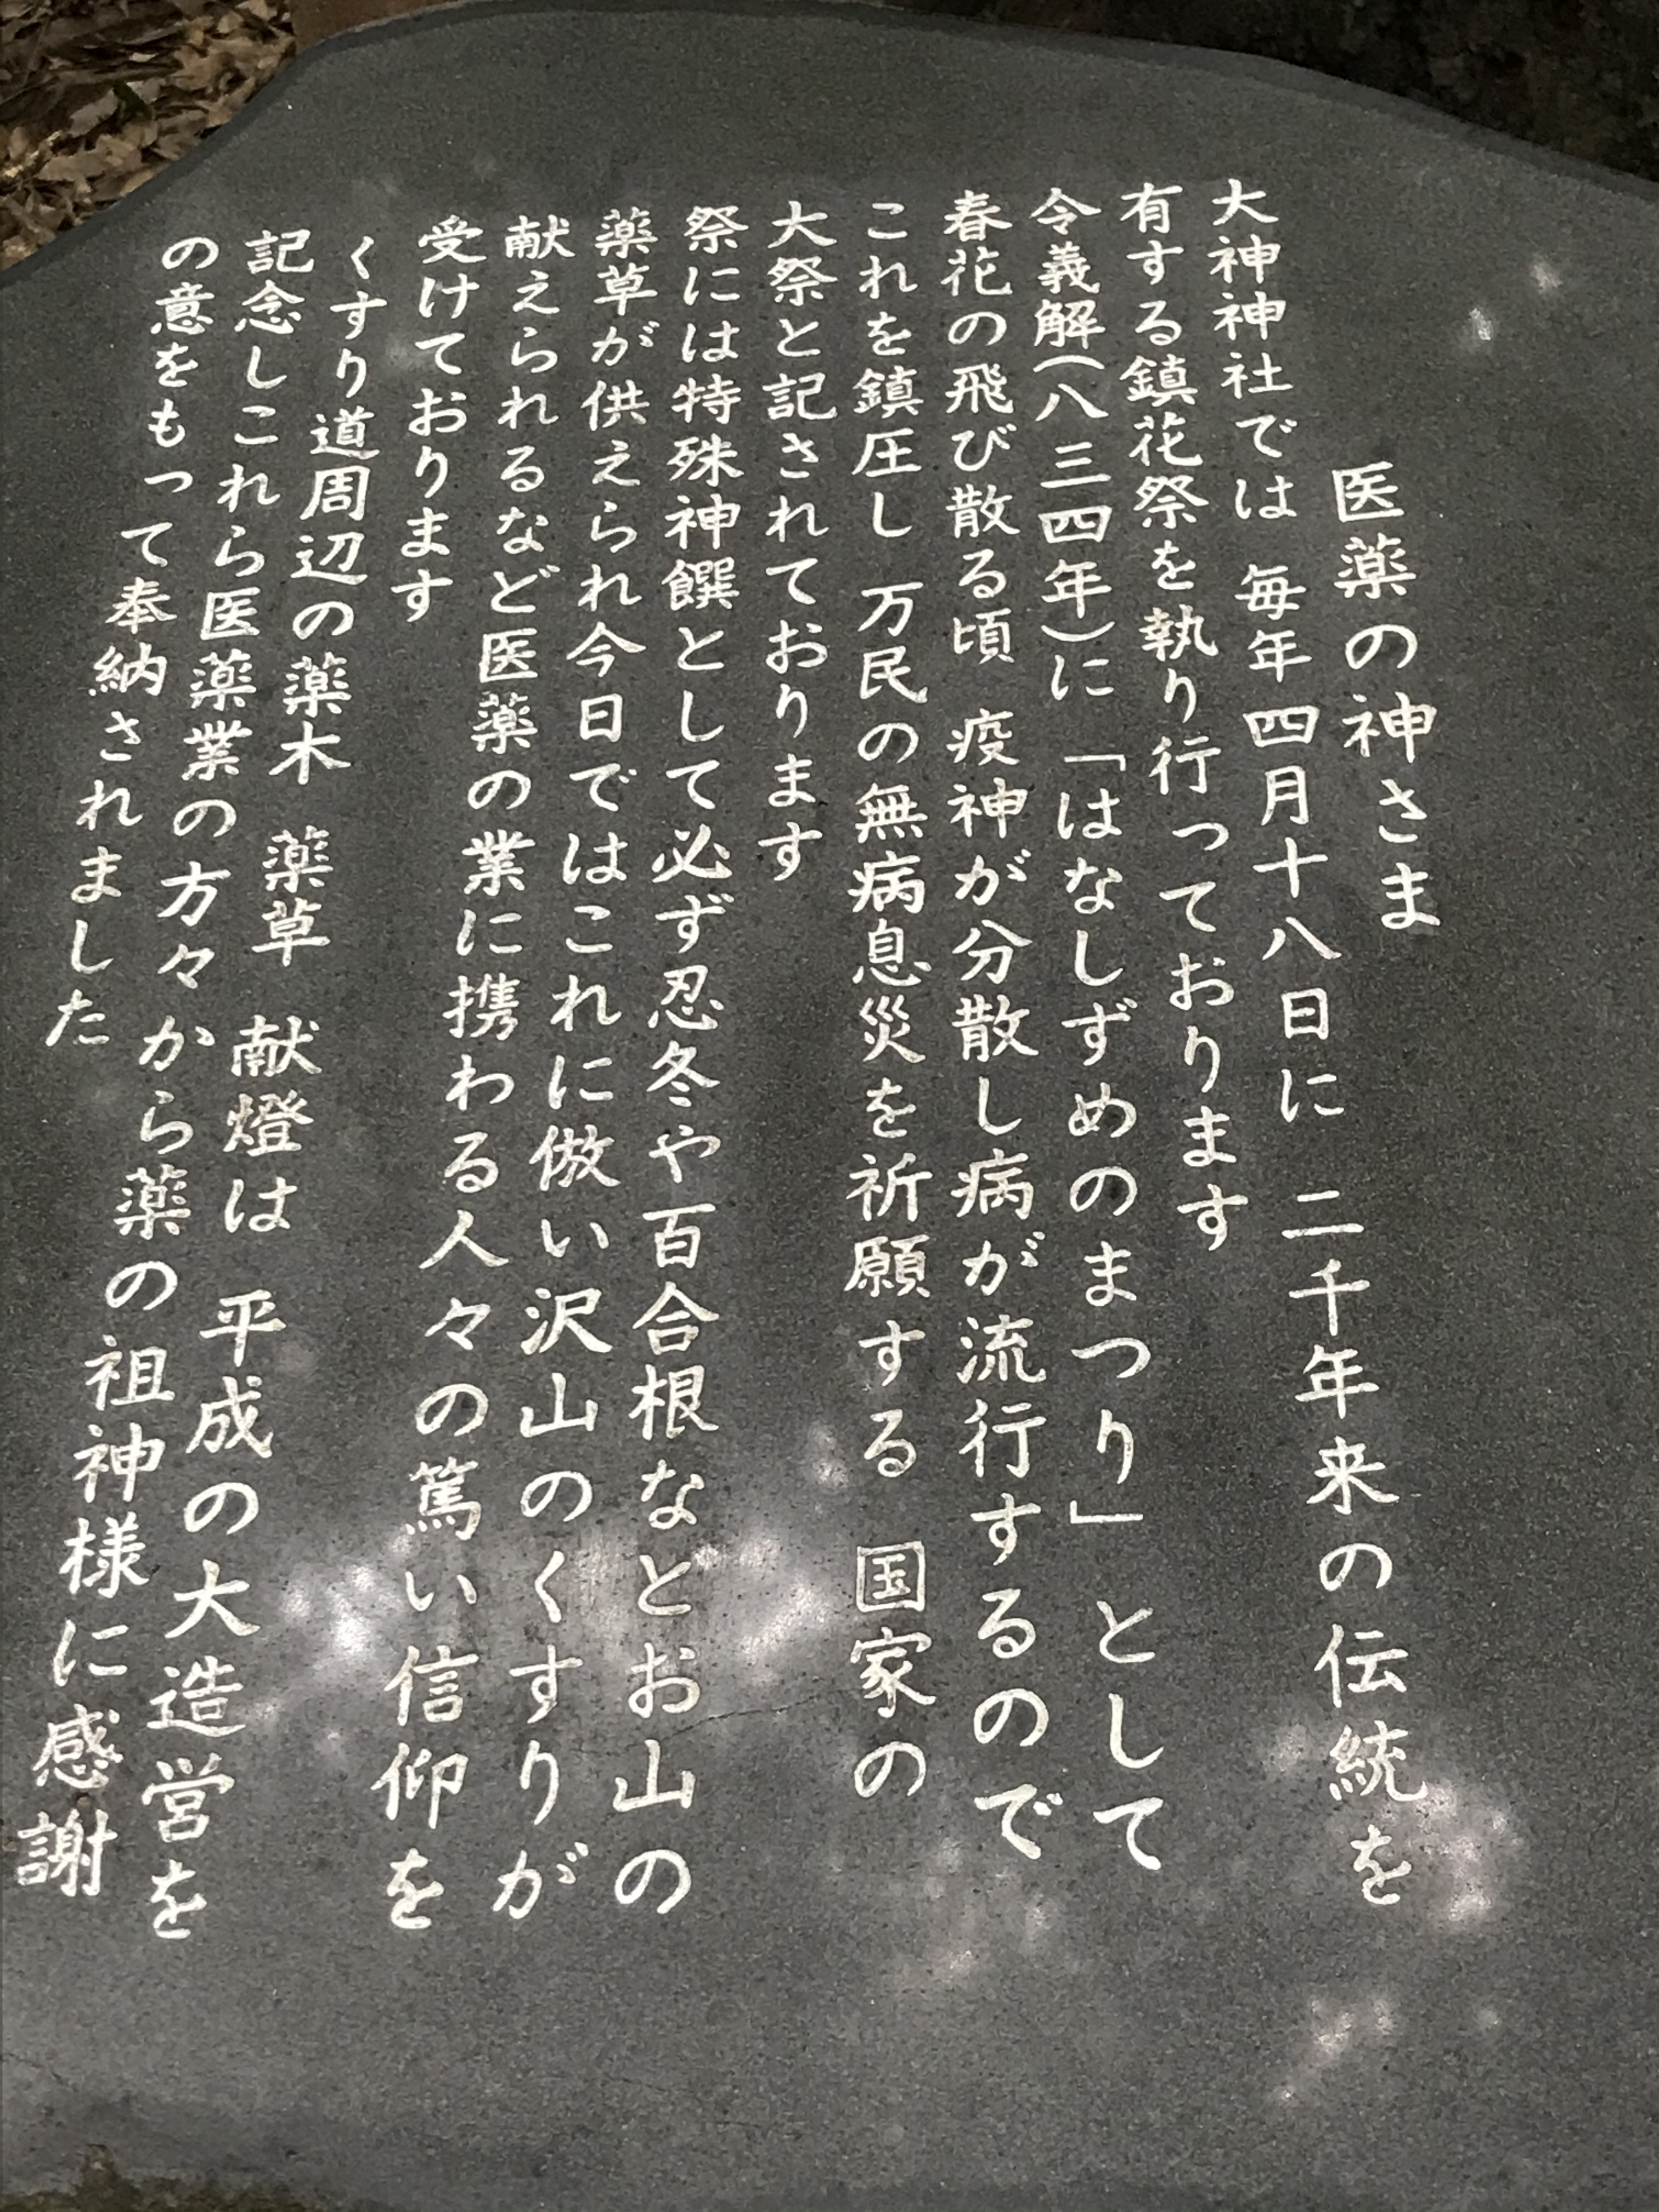 医薬の神さま
大神神社では 毎年四月十八日に 二千年来の伝統を
有する鎮花祭を執り行っております
令義解(八三四年)に「はなしずめのまつり」として
春花の飛び散る頃 疫神が分散し病が流行するので
これを鎮圧し 万民の無病息災を祈願する 国家の
大祭と記されております
祭には特殊神饌として必ず忍冬や百合根などお山の
薬草が供えられ今日ではこれに倣い沢山のくすりが
献えられるなど医薬の業に携わる人々の篤い信仰を
受けております
くすり道周辺の薬木 薬草 献燈は 平成の大造営を
記念しこれら医薬業の方々から薬の祖神様に感謝
の意をもって奉納されました